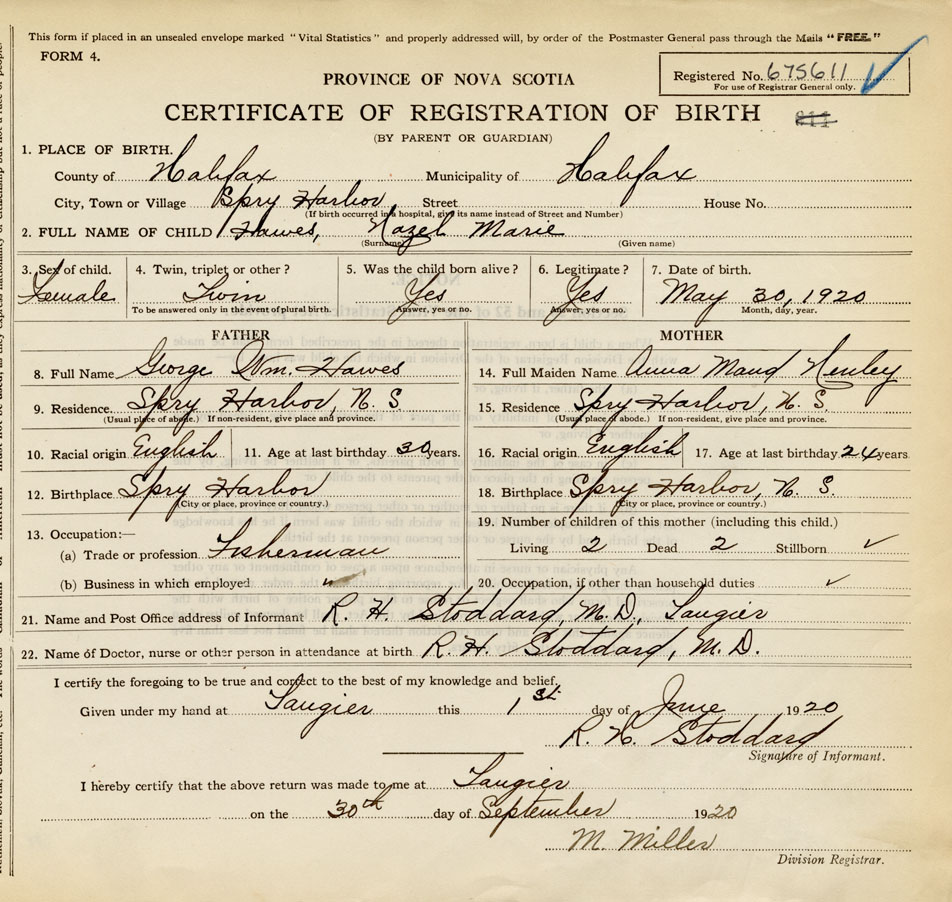 This form if placed in an unsealed envelope marked "Vital Statistics" and properly addressed will, by order of the Postmaster General pass through the Mails "FREE."
FORM 4.
Registered No. 675611
For use of Registrar General only.
PROVINCE OF NOVA SCOTIA
CERTIFICATE OF REGISTRATION OF BIRTH
(BY PARENT OR GUARDIAN)
1. PLACE OF BIRTH.
County of Halifax Municipality of Halifax
City, Town or Village Spry Harbor Street House No.
(If birth occurred in a hospital, give its name instead of Street and Number)
2. FULL NAME OF CHILD Hawes, Hazel Marie
(Surname) (Given name)
3. Sex of child. 4. Twin, triplet or other? 5. Was the child born alive? 6. Legitimate? 7. Date of birth.
Female Twin Yes Yes May 30, 1920
To be answered only in the event of plural birth. Answer, yes or no. Answer; yes or no. Month, day, year.
FATHER
8. Full Name George Wm. Hawes
9. Residence. Spry Harbor, N. S
(Usual place of abode.) If non-resident, give place and province.
10. Racial origin English 11. Age at last birthday 30 years.
12. Birthplace Spry Harbor
(City or place, province or country.)
13. Occupation:—
(a) Trade or profession Fisherman
(b) Business in which employed "
MOTHER
14. Full Maiden Name Anna Maud Henley
15. Residence Spry Harbor, N. S.
(Usual place of abode.) If non-resident, give place and province.
16. Racial origin English 17. Age at last birthday 24 years
18. Birthplace Spry Harbor, N. S.
(City or place, province or country.)
19. Number of children of this mother (including this child.)
Living 2 Dead 2 Stillborn ✓
20. Occupation, if other than household duties ✓
21. Name and Post Office address of Informant R. H. Stoddard, M.D., Tangier
22. Name of Doctor, nurse or other person in attendance at birth R. H. Stoddard, M. D.
I certify the foregoing to be true and correct to the best of my knowledge and belief.
Given under my hand at Tangier this 1st. day of June 1920
R. H. Stoddard
Signature of Informant.
I hereby certify that the above return was made to me at Tangier
on the 30th day of September 1920
M. Miller
Division Registrar.